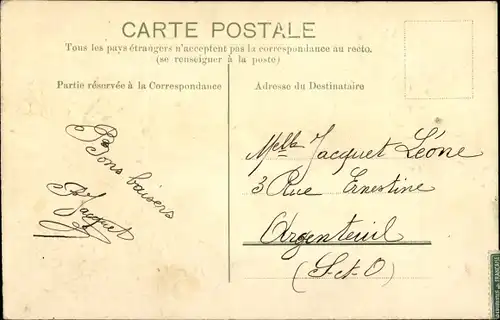 CARTE POSTALE
Tous les pays étrangers n'acceptent pas la correspondance au recto.
(se renseigner à la poste)
Partie réservée à la Correspondance
Adresse du Destinataire
Bons baisers
Jacquet
Melle Jacquet Léone
3 Rue Ernestine
Argenteuil
(S-&-O)